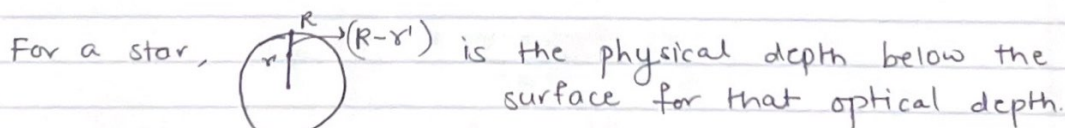 R
For a star, r' (R-r') is the physical depth below the
surface for that optical depth.